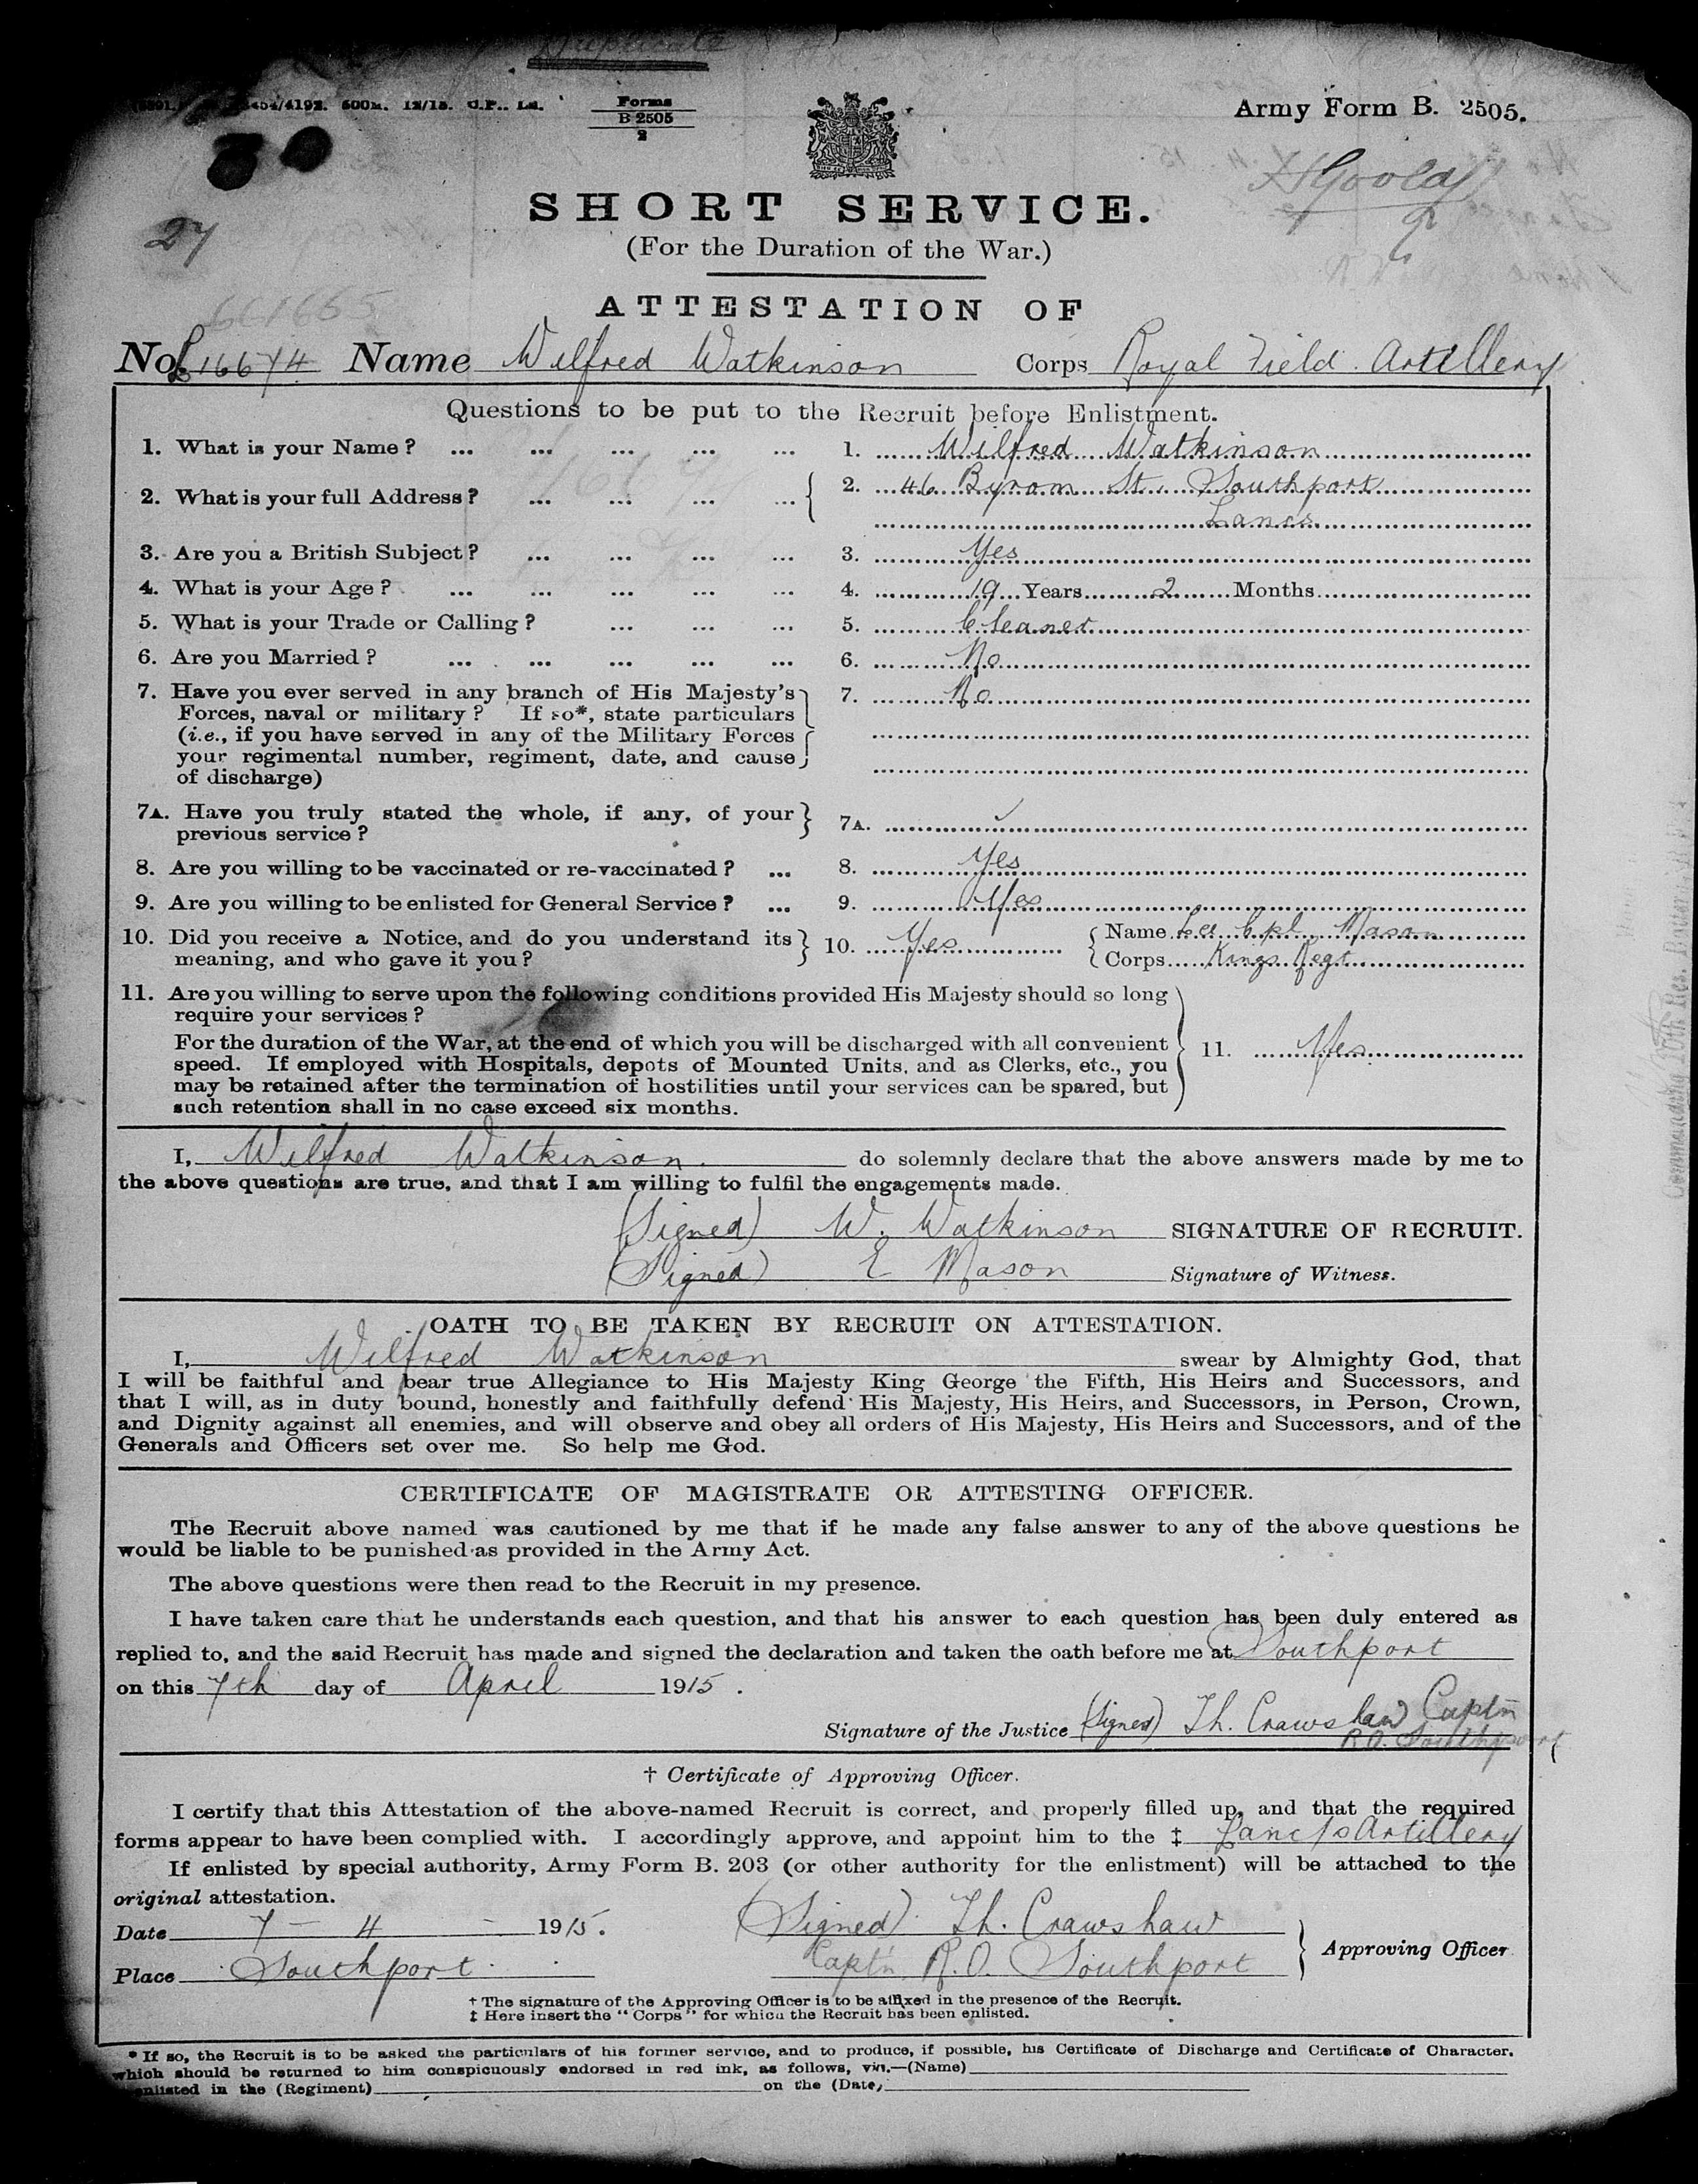 Duplicate
454/4192. 500M. 12/15. C.P., Ld.
Forms
B 2505
2
Army Form B. 2505.
27
SHORT SERVICE.
(For the Duration of the War.)
ATTESTATION OF
661665
No. L 16674 Name Wilfred Watkinson Corps Royal Field Artillery
Questions to be put to the Recruit before Enlistment.
1. What is your Name? ... ... ... ... ... 1. Wilfred Watkinson
2. What is your full Address? ... ... ... ... 2. 46 Byrom St. Southport
Lancs
3. Are you a British Subject? ... ... ... ... 3. Yes
4. What is your Age? ... ... ... ... ... 4. 19 Years 2 Months
5. What is your Trade or Calling? ... ... ... 5. Cleaner
6. Are you Married? ... ... ... ... ... 6. No
7. Have you ever served in any branch of His Majesty's 7. No
Forces, naval or military? If so*, state particulars
(i.e., if you have served in any of the Military Forces
your regimental number, regiment, date, and cause
of discharge)
7A. Have you truly stated the whole, if any, of your
previous service? 7A. ✓
8. Are you willing to be vaccinated or re-vaccinated? ... 8. Yes
9. Are you willing to be enlisted for General Service? ... 9. Yes
10. Did you receive a Notice, and do you understand its 10. Yes Name Lce Cpl Mason
meaning, and who gave it you? Corps Kings Regt
11. Are you willing to serve upon the following conditions provided His Majesty should so long
require your services?
For the duration of the War, at the end of which you will be discharged with all convenient 11. Yes
speed. If employed with Hospitals, depots of Mounted Units, and as Clerks, etc., you
may be retained after the termination of hostilities until your services can be spared, but
such retention shall in no case exceed six months.
I, Wilfred Watkinson. do solemnly declare that the above answers made by me to
the above questions are true, and that I am willing to fulfil the engagements made.
(Signed) W. Watkinson SIGNATURE OF RECRUIT.
(Signed) E Mason Signature of Witness.
OATH TO BE TAKEN BY RECRUIT ON ATTESTATION.
I, Wilfred Watkinson swear by Almighty God, that
I will be faithful and bear true Allegiance to His Majesty King George the Fifth, His Heirs and Successors, and
that I will, as in duty bound, honestly and faithfully defend His Majesty, His Heirs, and Successors, in Person, Crown,
and Dignity against all enemies, and will observe and obey all orders of His Majesty, His Heirs and Successors, and of the
Generals and Officers set over me. So help me God.
CERTIFICATE OF MAGISTRATE OR ATTESTING OFFICER.
The Recruit above named was cautioned by me that if he made any false answer to any of the above questions he
would be liable to be punished as provided in the Army Act.
The above questions were then read to the Recruit in my presence.
I have taken care that he understands each question, and that his answer to each question has been duly entered as
replied to, and the said Recruit has made and signed the declaration and taken the oath before me at Southport
on this 7th day of April 1915.
Signature of the Justice (Signed) Th. Crawshaw Captn
R.O. Southport
† Certificate of Approving Officer.
I certify that this Attestation of the above-named Recruit is correct, and properly filled up, and that the required
forms appear to have been complied with. I accordingly approve, and appoint him to the ‡ Artillery
If enlisted by special authority, Army Form B. 203 (or other authority for the enlistment) will be attached to the
original attestation.
Date 7 - 4 - 1915. (Signed) Th. Crawshaw
Place Southport. Captn. R.O. Southport Approving Officer
† The signature of the Approving Officer is to be affixed in the presence of the Recruit.
‡ Here insert the "Corps" for which the Recruit has been enlisted.
* If so, the Recruit is to be asked the particulars of his former service, and to produce, if possible, his Certificate of Discharge and Certificate of Character,
which should be returned to him conspicuously endorsed in red ink, as follows, viz.—(Name)
enlisted in the (Regiment) on the (Date)